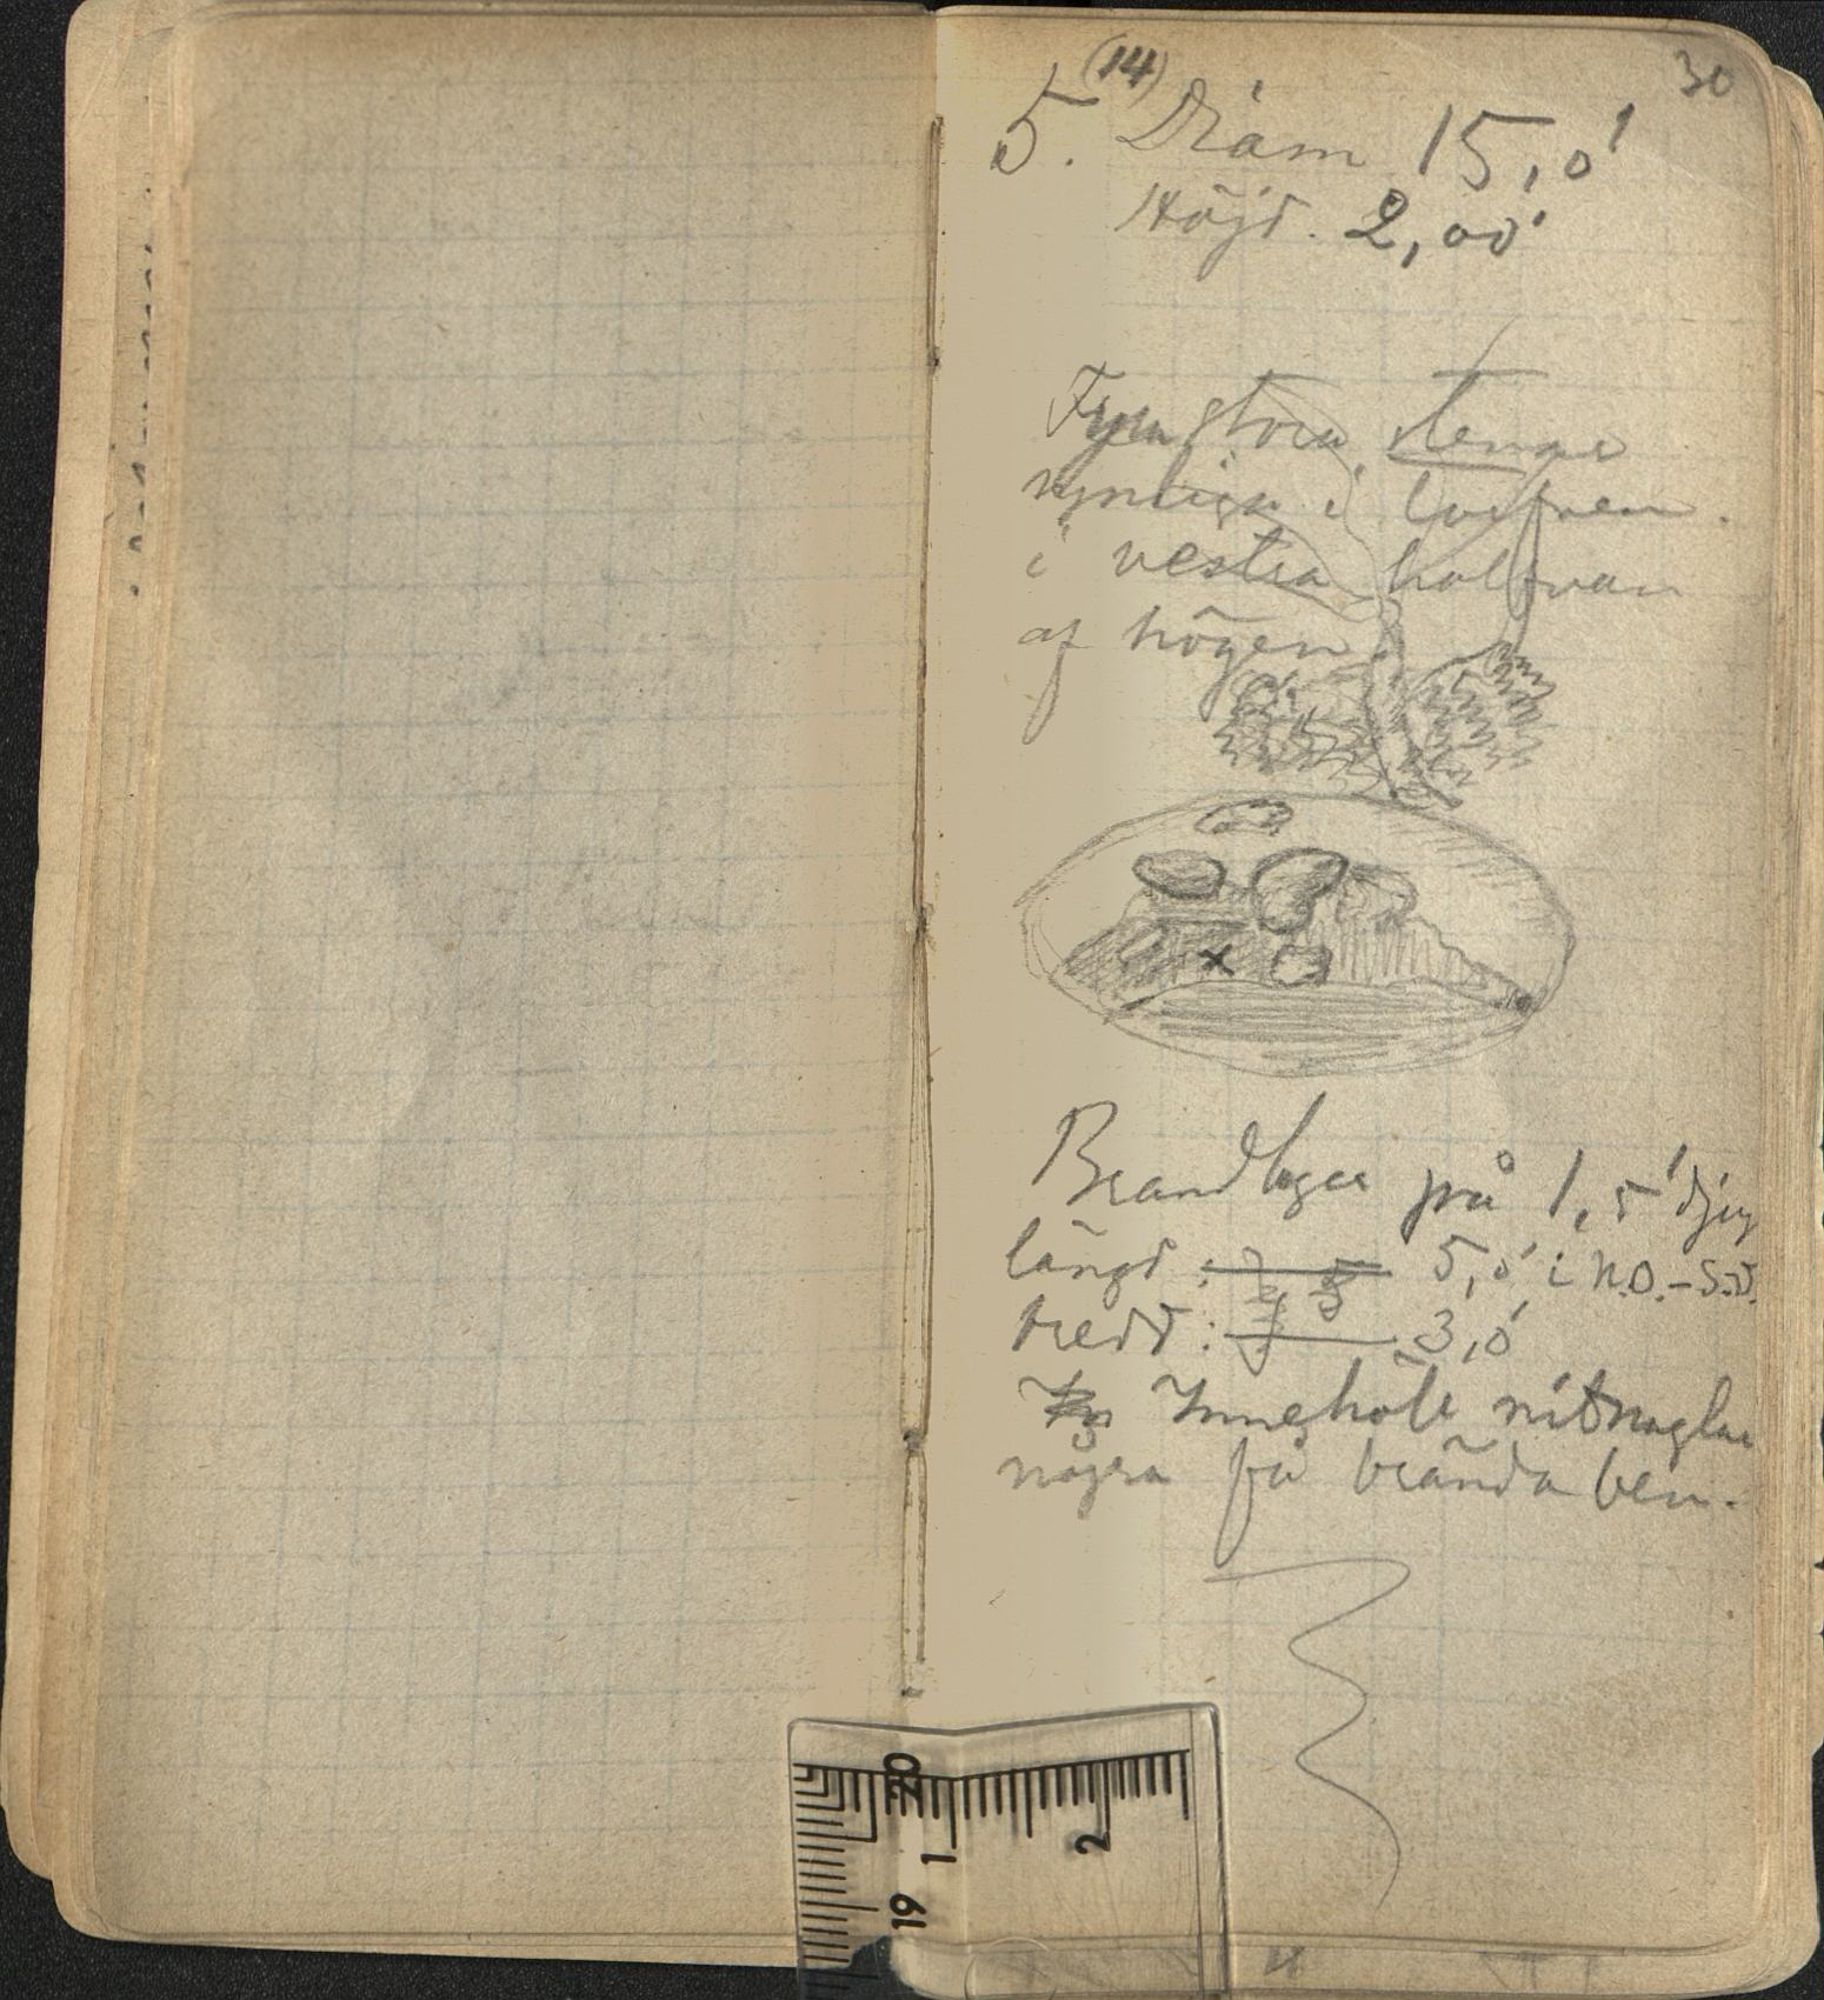 30
(14)
5. Diam 15,0'
Höjd. 2,00'
Fyra stora stenar
synliga i torfven.
i vestra halfvan
af högen.
Brandlager på 1,5' djup
längd : 5,0' i N.O.-S.V.
bredd : 3,0'
Innehöll nitnaglar
några få brända ben.
20
1
2
19